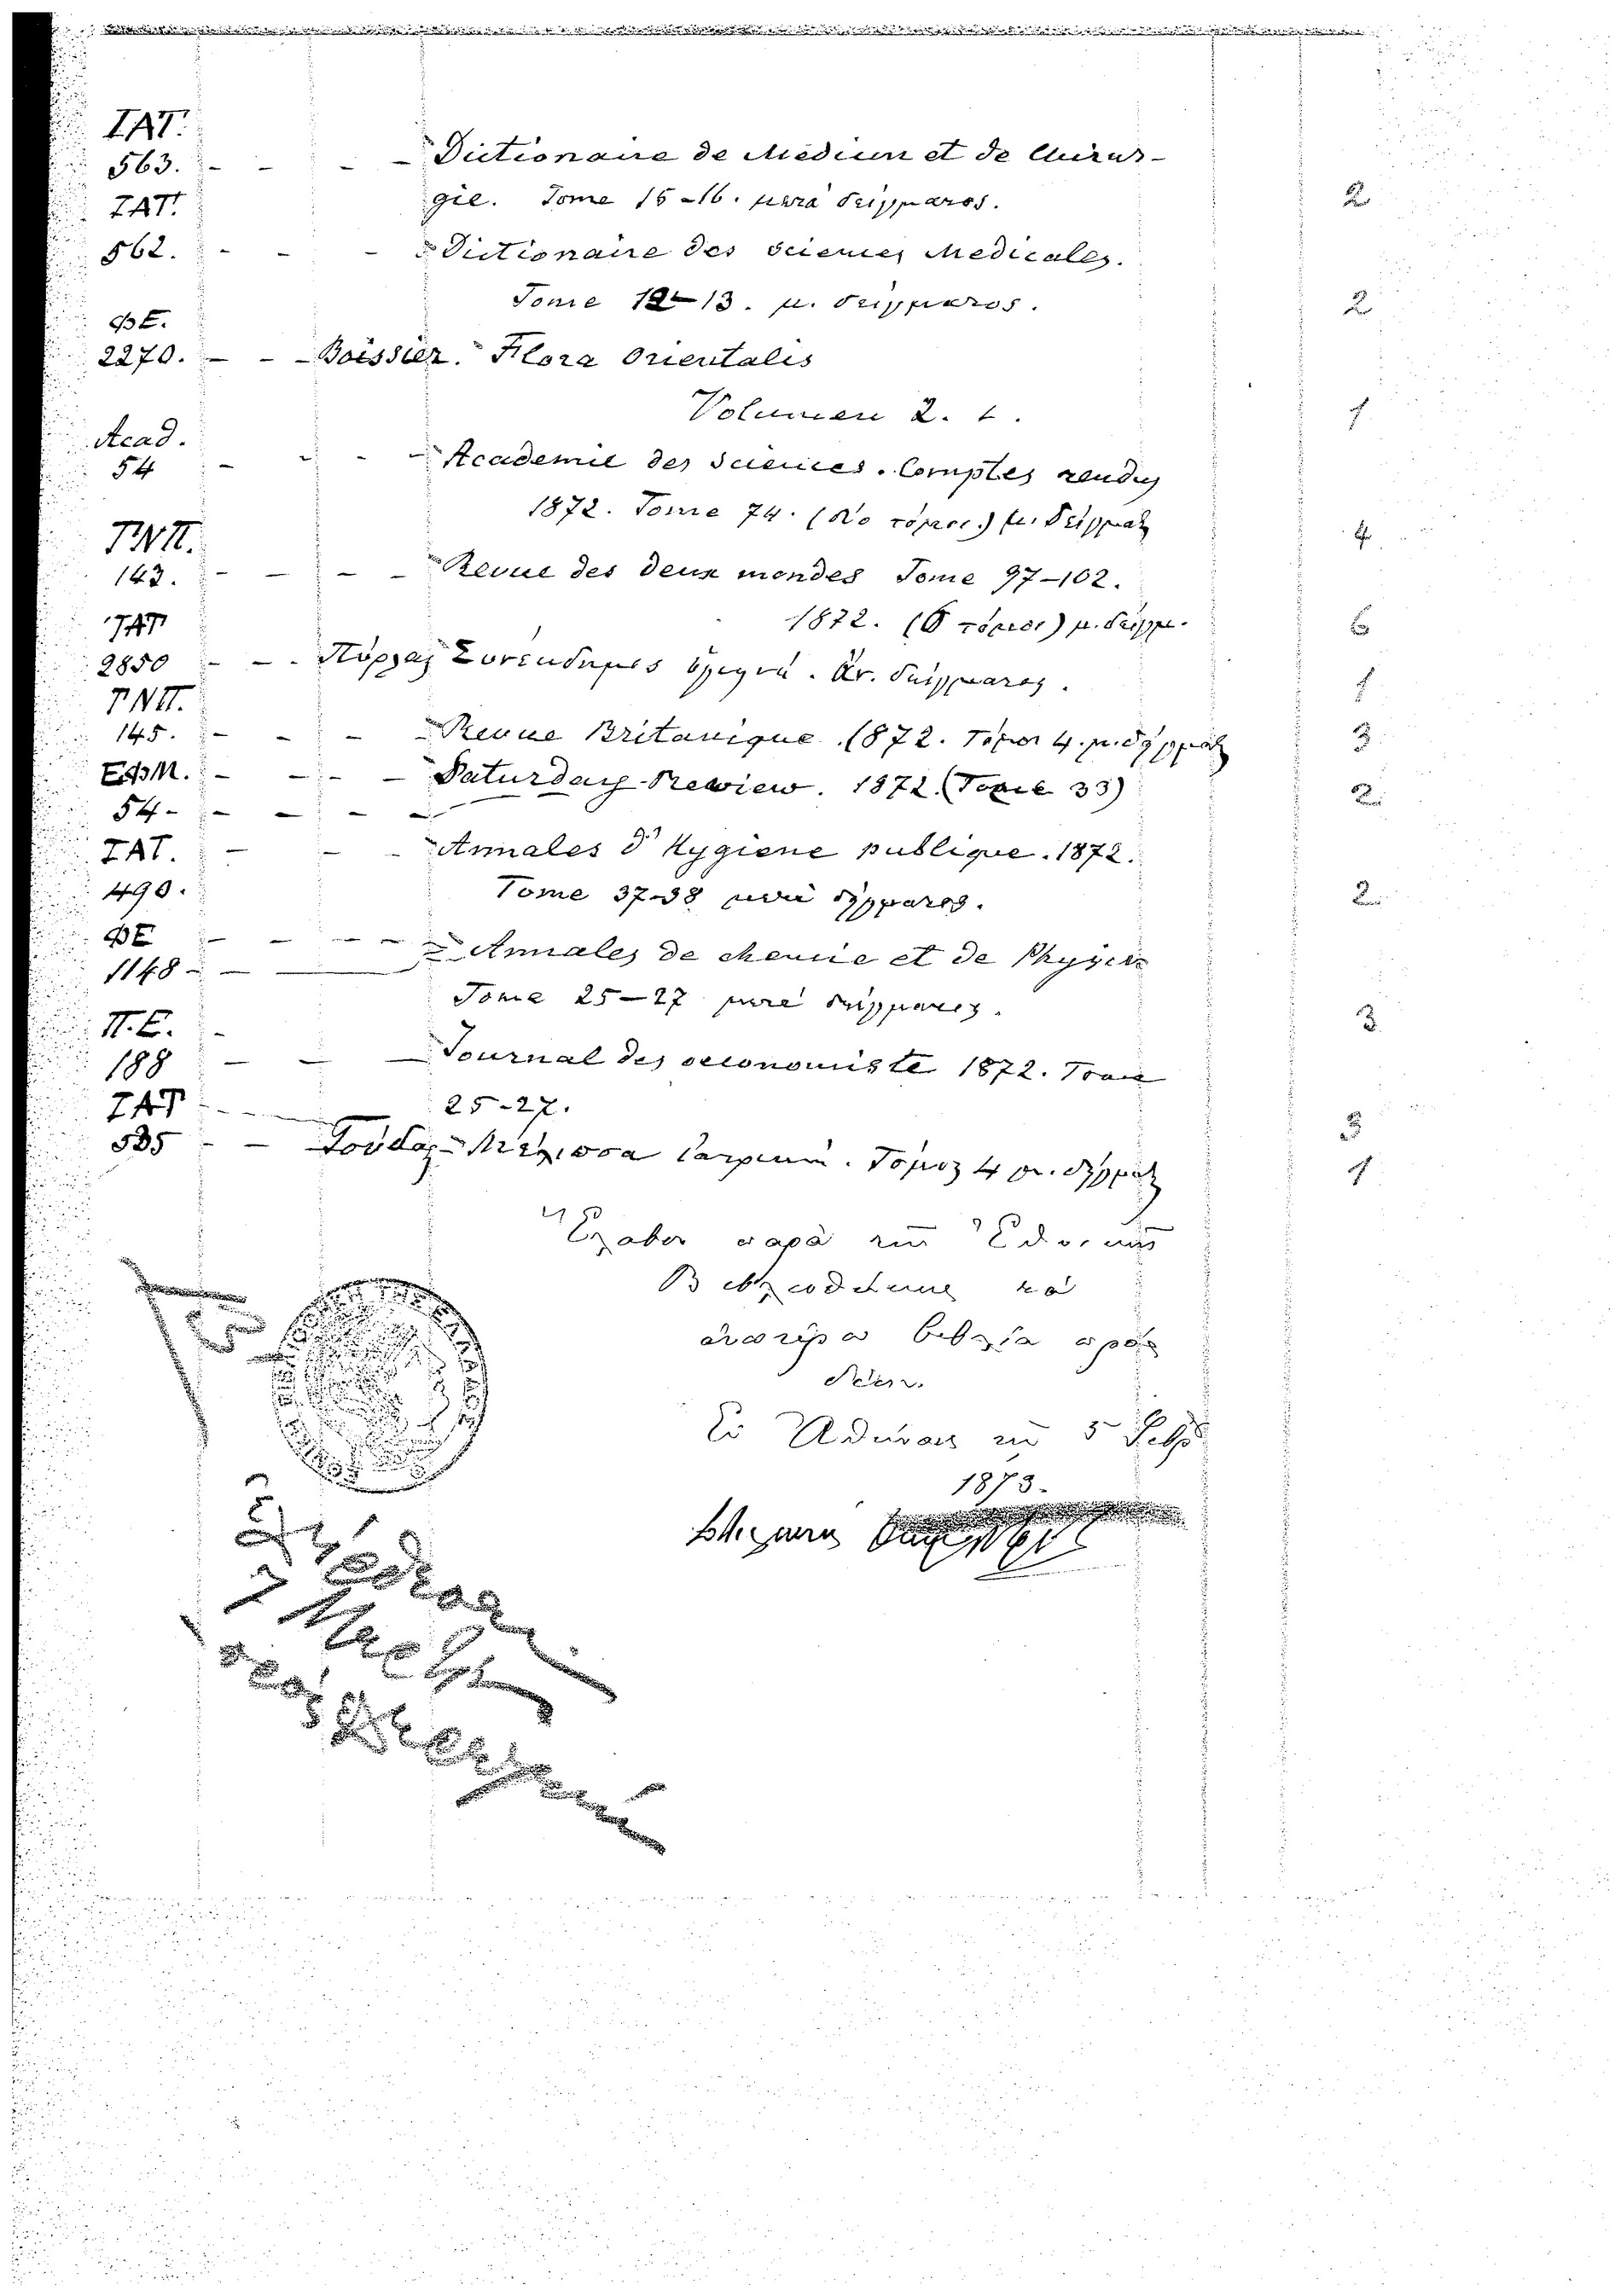 ΙΑΤ.
563. - - - - Dictionaire de Medicin et de Chirur-
gie. Tome 15-16. μετὰ δέρματος. 2
ΙΑΤ.
562. - - - Dictionaire des sciences Medicales.
Tome 12-13. μ. δέρματος. 2
ΦΕ.
2270. - - - Boissier. Flora Orientalis
Volumen 2. 1
Acad.
54 - - - - Academie des Sciences. Comptes rendus
1872. Tome 74. (δύο τόμοι) μ. δέρματ 4
ΓΝΠ.
143. - - - - Revue des deux mondes Tome 97-102.
1872. (6 τόμοι) μ. δέρμ. 6
ΙΑΤ
2850 - - - Συνένδημος . ἄν. δέρματος. 1
ΓΝΠ.
145. - - - Revue Britanique. 1872. Τόμοι 4. μ. δέρματ 3
ΕΦΜ. - - - - Saturday Rewiew. 1872. (Tome 33) 2
54 - - - - -
ΙΑΤ. - - - Annales d'Hygiene publique. 1872.
490. Tome 37-38 μετὰ δέρματος. 2
ΦΕ - - - - Annales de chemie et de Physic
1148 - -
Tome 25-27 μετὰ δέρματος. 3
Π.Ε. -
188 - - - Journal des oeconomiste 1872. Tome
ΙΑΤ - - - 25-27. 3
585 - - Γούδας Μέλισσα Ἰατρική. Τόμος 4 μ. δέρματ 1
Ἔλαβον παρὰ τῆς Ἐθνικῆς
Βιβλιοθήκης τὰ
ἀνωτέρω βιβλία πρὸς
δέσιν.
Ἐν Ἀθήναις τῇ 5 Φεβρ
1873.